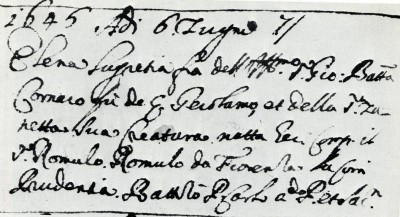 1646 Adi 6 Zugno //
Elena Lugretia fia dell Illmo Sr Gio: Batta
Cornaro de G. Gerolamo, et della Sra Za-
netta sua creatura natta Comp il
Sr Romulo Romulo da Fiorenza la
Prudentia Battizò P Carlo